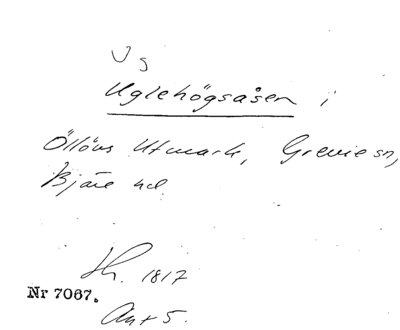 Ug
Uglehögsåsen i
Öllövs Utmark, Grevie sn,
Bjäre hd
Th. 1817
Nr 7067.
Ant 5.